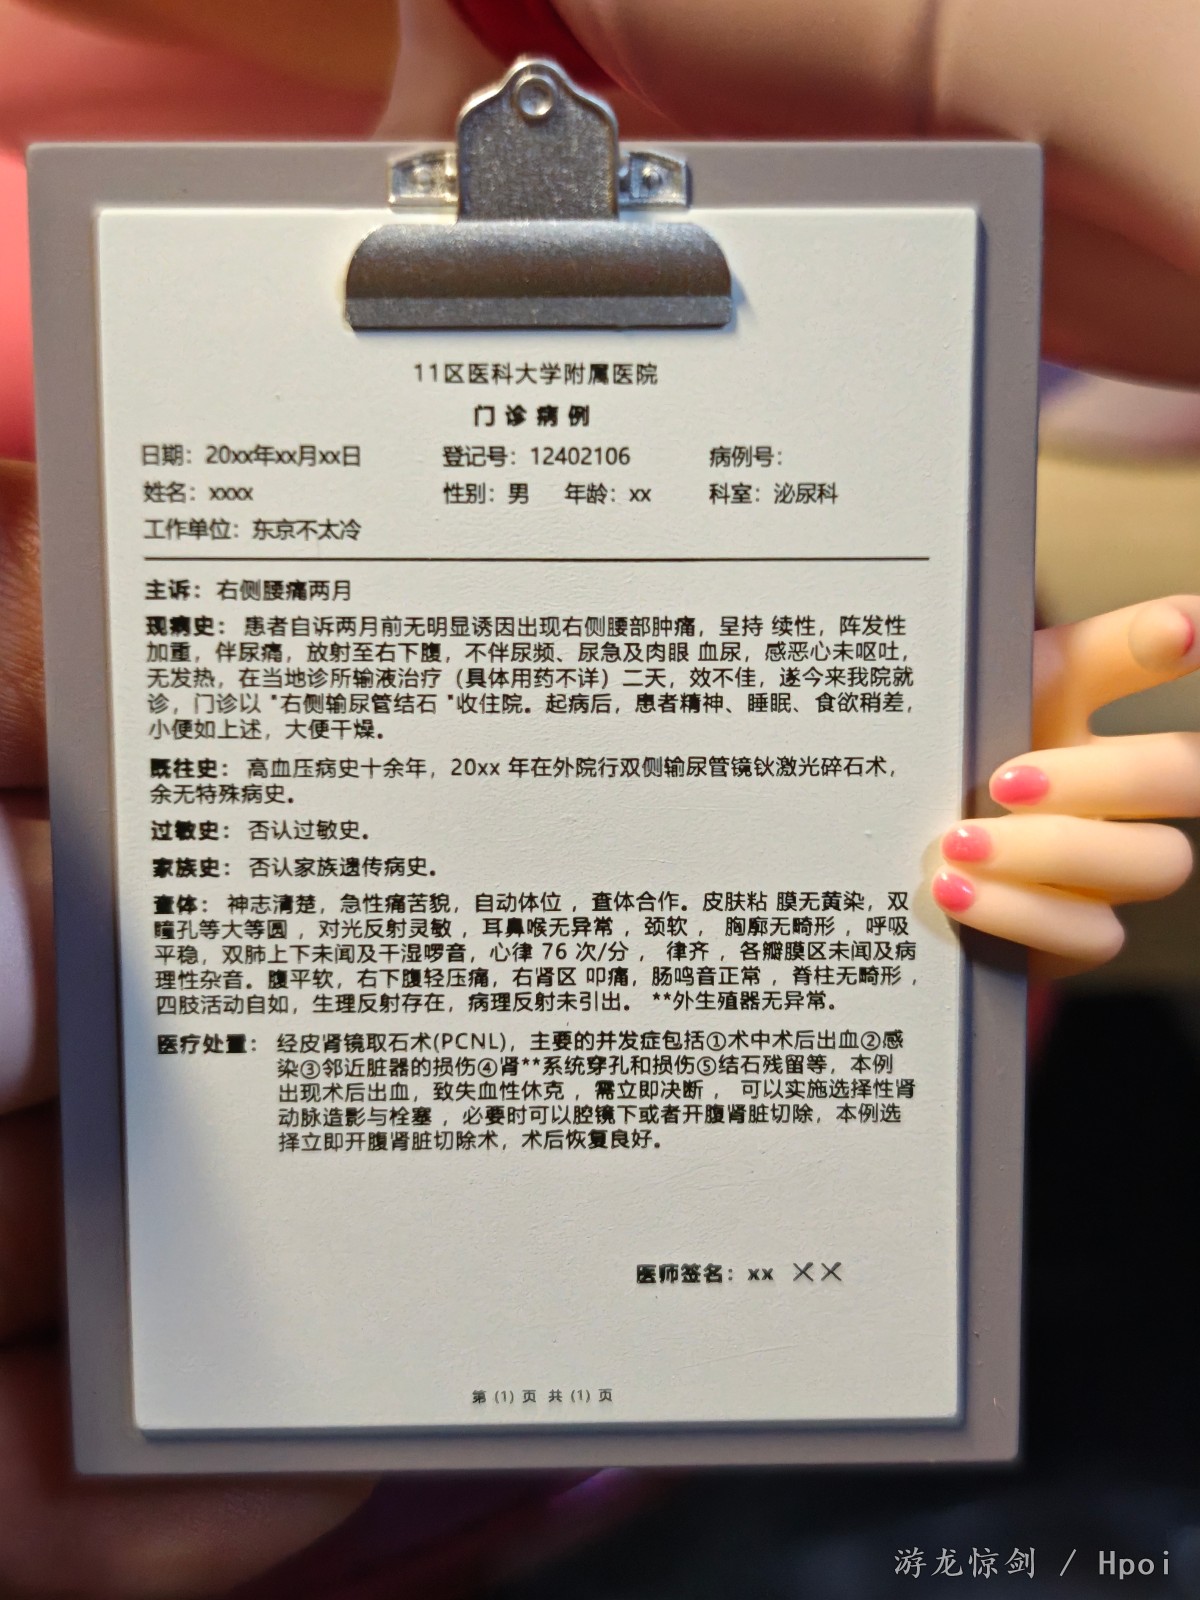 11区医科大学附属医院
门诊病例
日期：20xx年xx月xx日 登记号：12402106 病例号：
姓名：xxxx 性别：男 年龄：xx 科室：泌尿科
工作单位：东京不太冷
主诉：右侧腰痛两月
现病史：患者自诉两月前无明显诱因出现右侧腰部肿痛，呈持 续性，阵发性
加重，伴尿痛，放射至右下腹，不伴尿频、尿急及肉眼 血尿，感恶心未呕吐，
无发热，在当地诊所输液治疗（具体用药不详）二天，效不佳，遂今来我院就
诊，门诊以 "右侧输尿管结石 "收住院。起病后，患者精神、睡眠、食欲稍差，
小便如上述，大便干燥。
既往史：高血压病史十余年，20xx 年在外院行双侧输尿管镜钬激光碎石术，
余无特殊病史。
过敏史：否认过敏史。
家族史：否认家族遗传病史。
查体：神志清楚，急性痛苦貌，自动体位 ，查体合作。皮肤粘 膜无黄染，双
瞳孔等大等圆 ，对光反射灵敏 ，耳鼻喉无异常 ，颈软 ， 胸廓无畸形 ，呼吸
平稳，双肺上下未闻及干湿啰音，心律 76 次/分 ， 律齐 ，各瓣膜区未闻及病
理性杂音。腹平软，右下腹轻压痛，右肾区 叩痛，肠鸣音正常 ，脊柱无畸形 ，
四肢活动自如，生理反射存在，病理反射未引出。 **外生殖器无异常。
医疗处置：经皮肾镜取石术(PCNL)，主要的并发症包括①术中术后出血②感
染③邻近脏器的损伤④肾**系统穿孔和损伤⑤结石残留等，本例
出现术后出血，致失血性休克 ，需立即决断 ， 可以实施选择性肾
动脉造影与栓塞 ，必要时可以腔镜下或者开腹肾脏切除，本例选
择立即开腹肾脏切除术，术后恢复良好。
医师签名：xx ××
第（1）页 共（1）页
游龙惊剑 / Hpoi